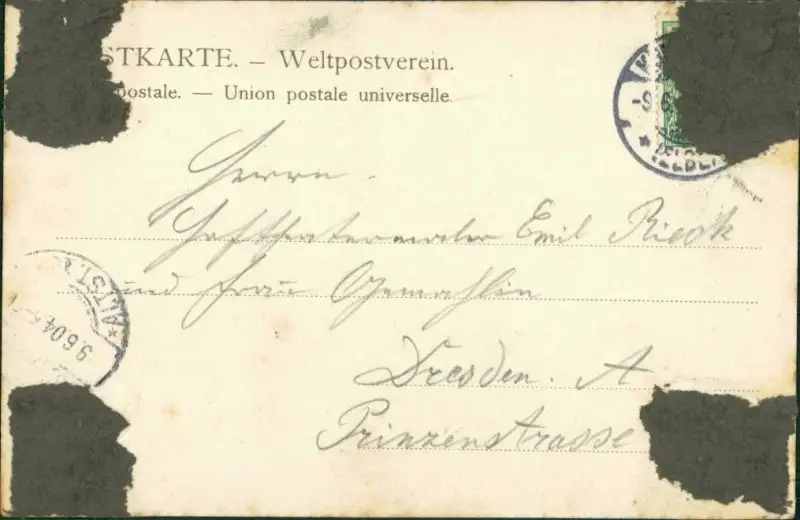 STKARTE. – Weltpostverein.
postale. — Union postale universelle.
Herrn
Hoftheatermaler Emil Rieck
und Frau Gemahlin
Dresden. A
Prinzenstrasse
ALTST.
9.6.04